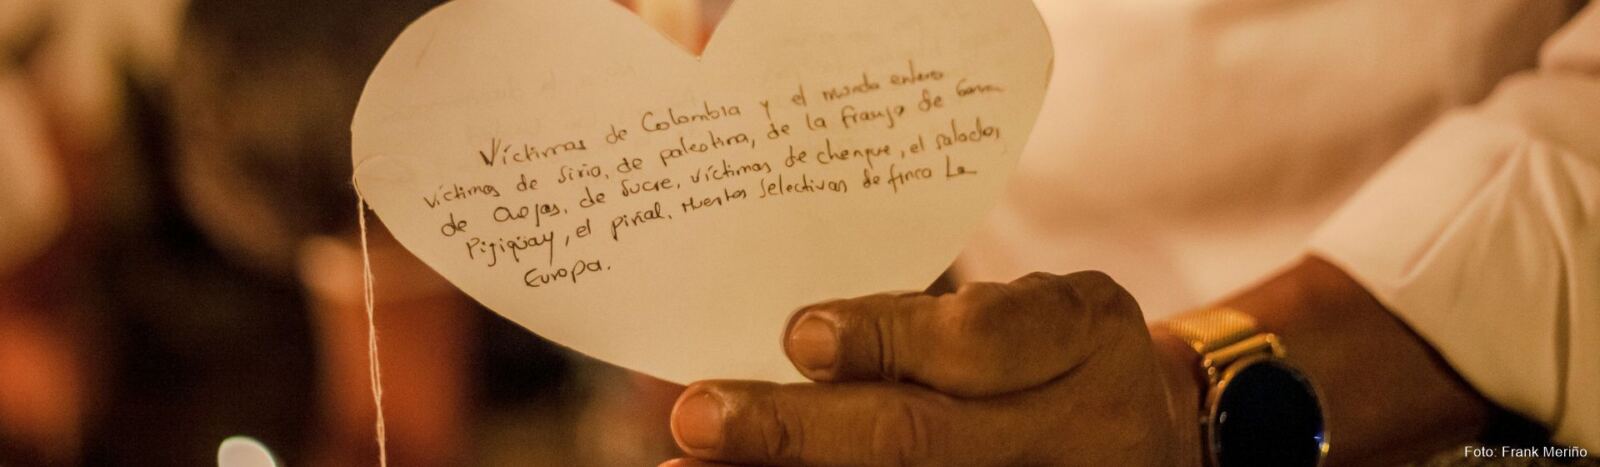 Víctimas de Colombia y el mundo entero
víctimas de Siria, de palestina, de la franja de Gaza
de Ovejas, de Sucre, víctimas de chengue, el salado,
Pijiguay, el piñal, Muertes Selectivas de finca La
Europa.
Foto: Frank Meriño